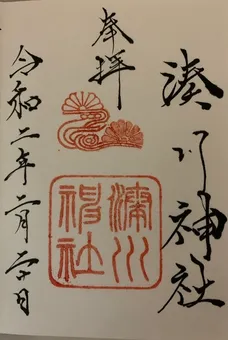 奉拝
湊川神社
湊川神社
令和二年二月二十日